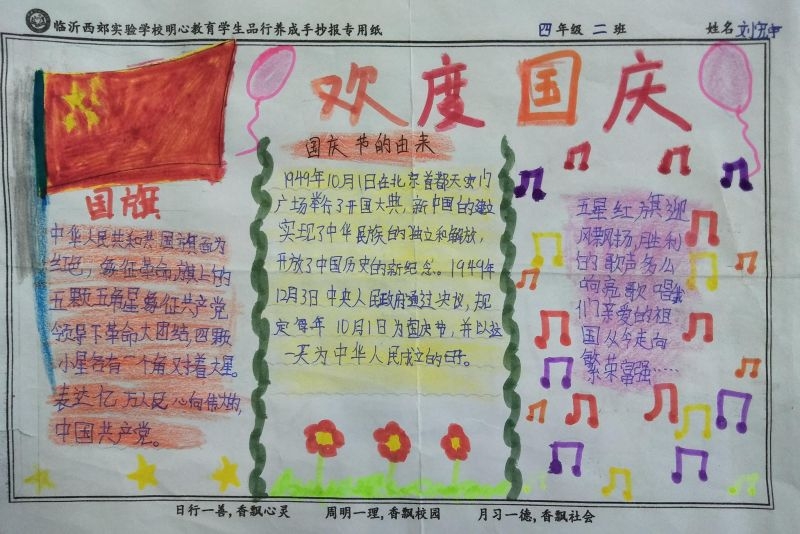 临沂西郊实验学校明心教育学生品行养成手抄报专用纸
四年级 二 班
姓名
欢度国庆
国旗
中华人民共和共国旗面为
红色，象征革命，旗上的
五颗五角星象征共产党
领导下革命大团结，四颗
小星各有一个角对着大星。
表达亿万人民心向伟大的，
中国共产党。
国庆节的由来
1949年10月1日在北京首都天安门
广场举行了开国大典，新中国的建立
实现了中华民族的独立和解放，
开放了中国历史的新纪念。1949年
12月3日中央人民政府通过决议，规
定每年10月1日为国庆节，并以这
一天为中华人民成立的日子。
五星红旗迎
风飘扬，胜利
的歌声多么
响亮歌唱我
们亲爱的祖
国从今走向
繁荣富强……
日行一善，香飘心灵 周明一理，香飘校园 月习一德，香飘社会